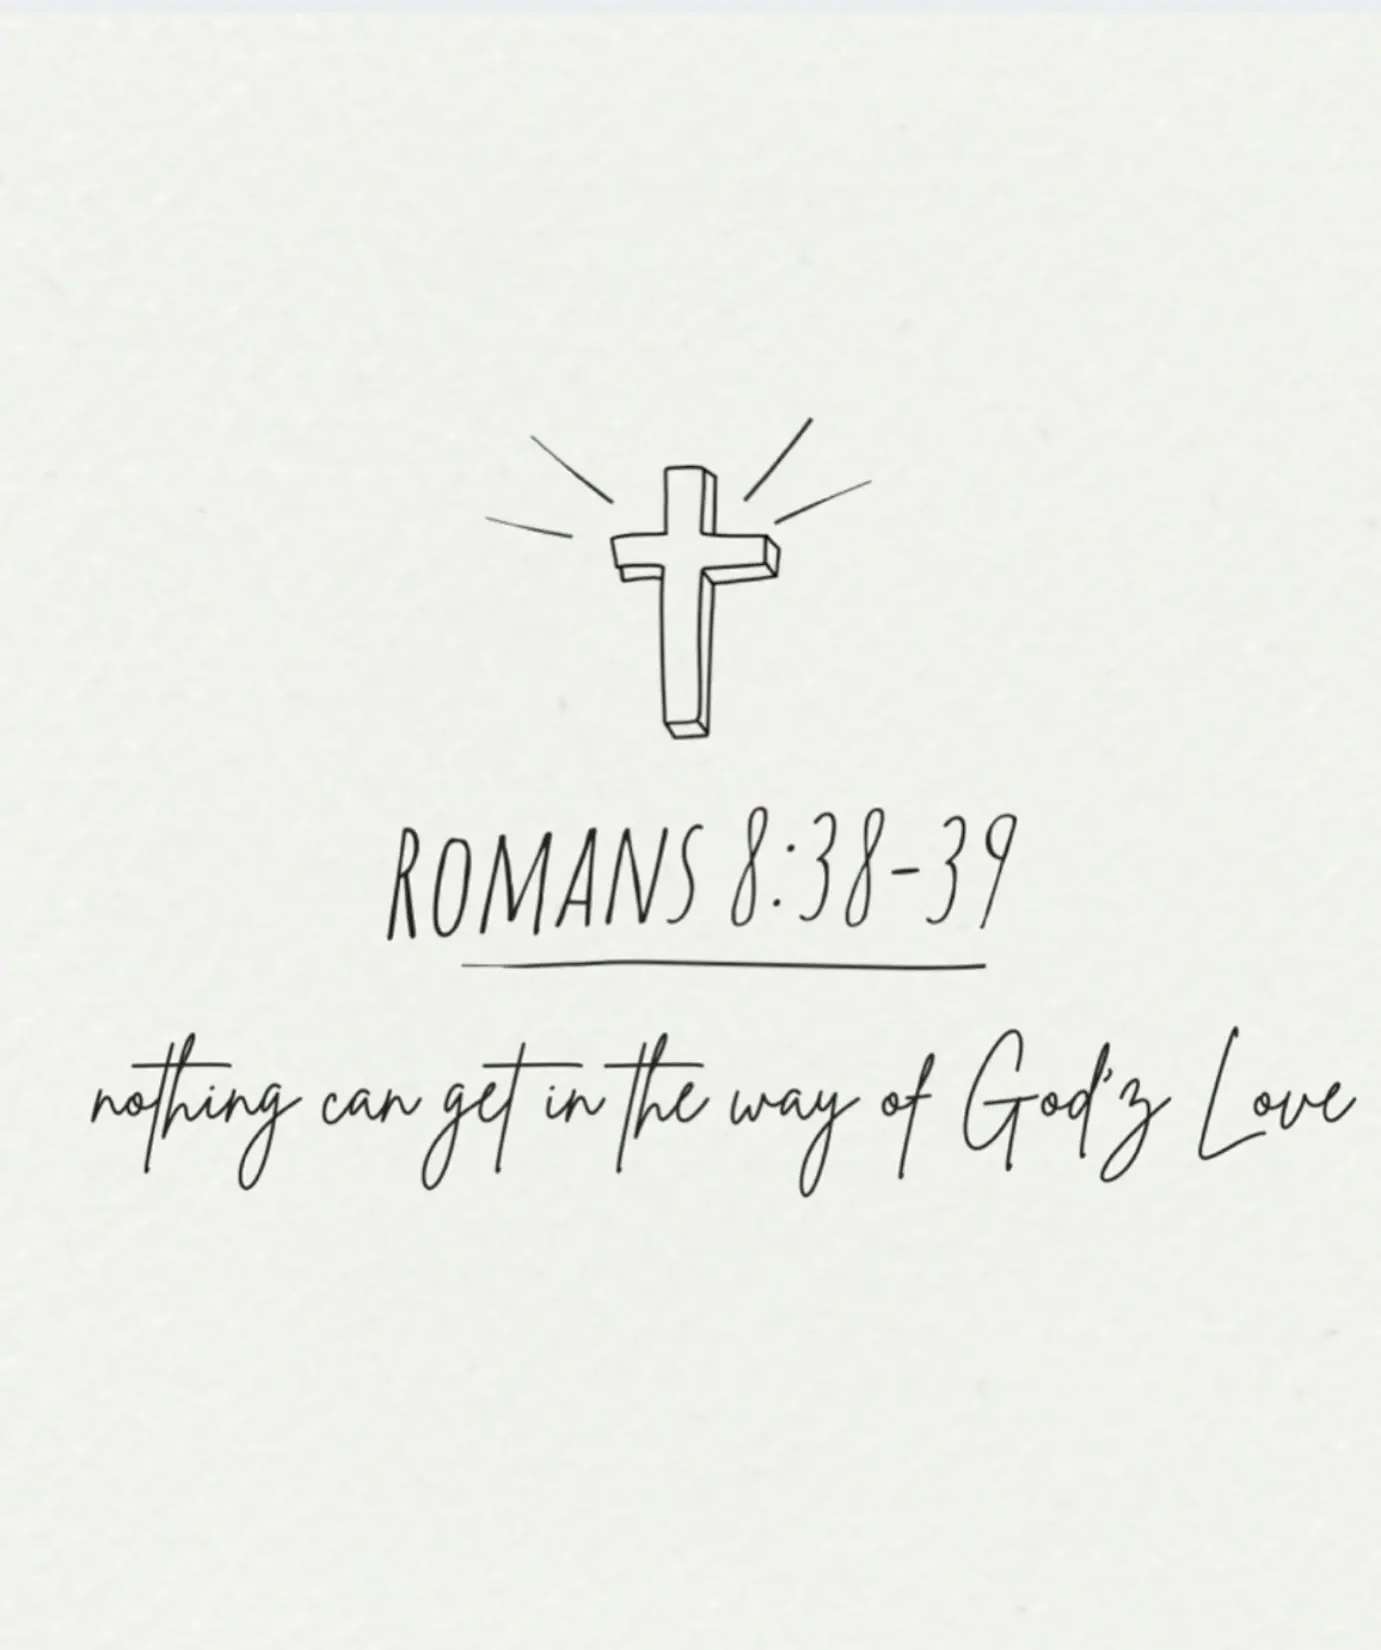 ROMANS 8:38-39
nothing can get in the way of God'z Love